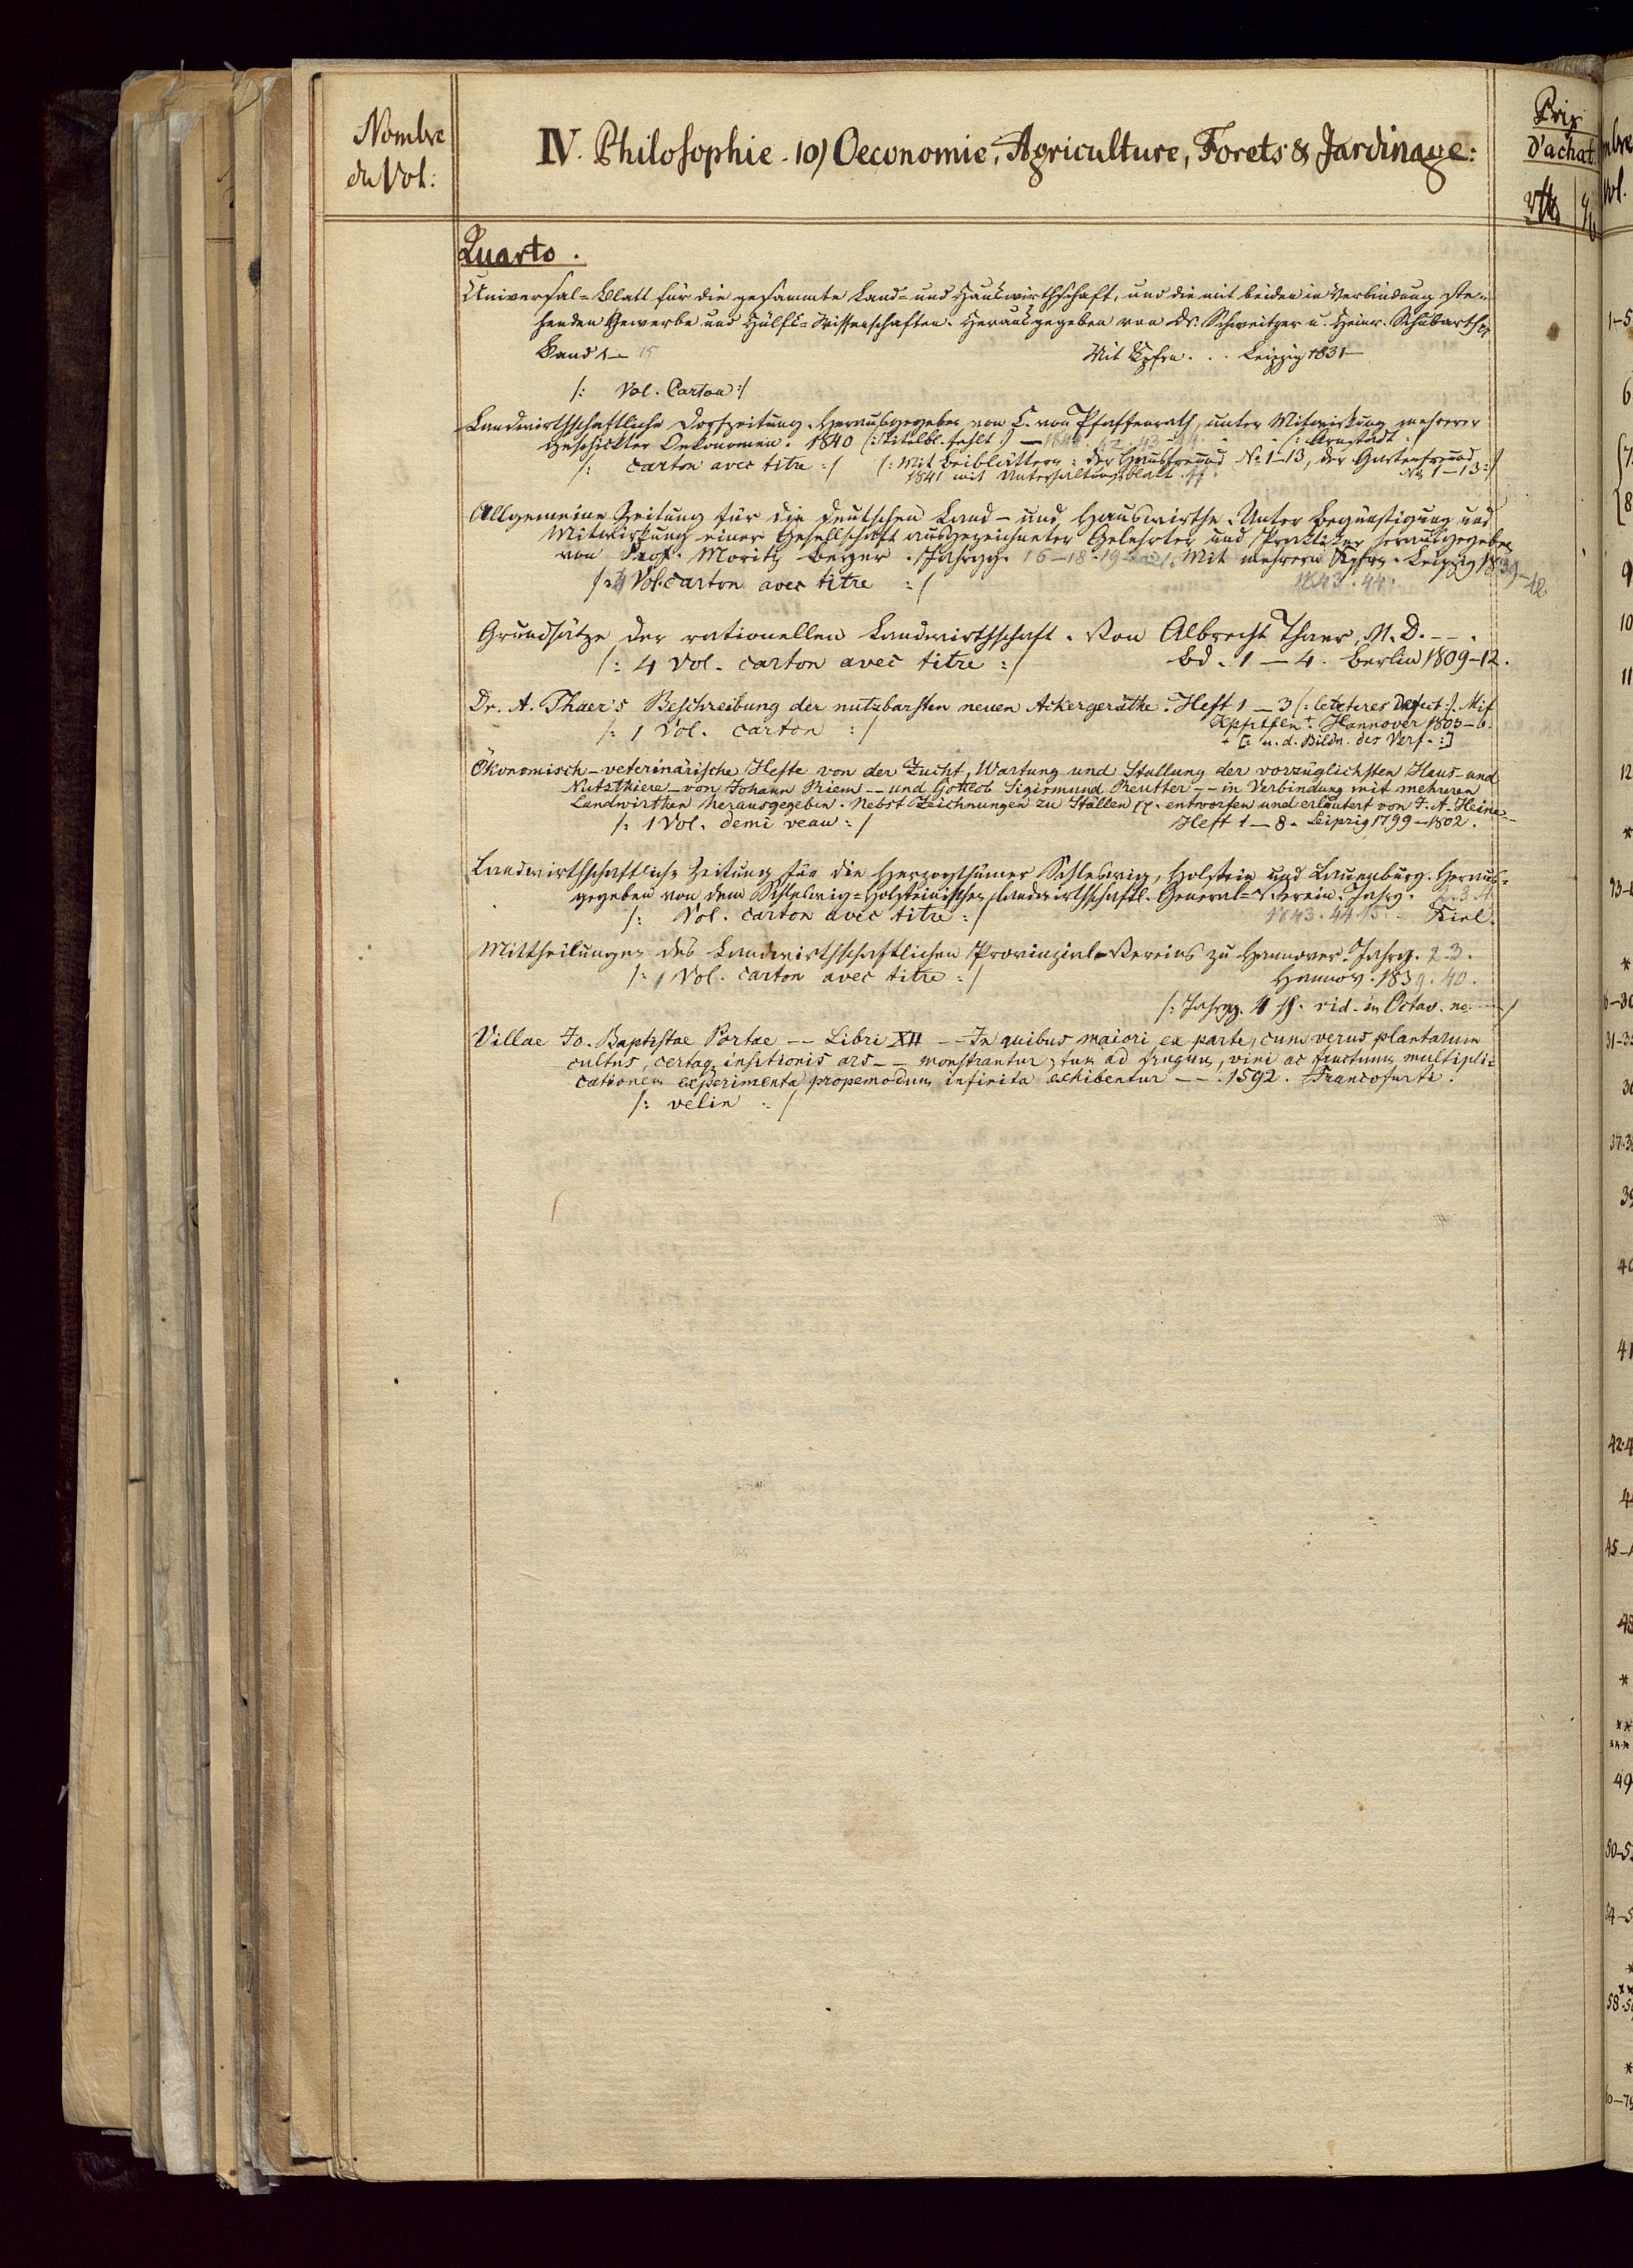 Nombre
du Vol:
IV. Philosophie. 10) Oeconomie, Agriculture, Forets & Jardinage:
Prix
d'achat.
Quarto.
Universal=Blatt für die gesammte Land= und Hauswirthschaft, und die mit beiden in Verbindung ste=
henden Gewerbe und Hülfs=Wissenschaften. Herausgegeben von Dr. Schweitzer u. Heinr. Schubarth
Band 1— 15 Mit Kpfrn. . . Leipzig 1831—
/: Vol. Carton :/
Landwirthschaftliche Dorfzeitung. Herausgegeben von C. von Pfaffenrath, unter Mitwirkung mehrerer
geschickter Oekonomen. 1840 (: Titelbl. fehlt :) — 42. 43. 44. Arnstadt.
/: carton avec titre :/ /: Mit Beiblättern: Der Hausfreund No 1-13, der Gartenfreund
1841 mit Unterhaltungsblatt. No 1-13 :/
Allgemeine Zeitung für die deutschen Land- und Hauswirthe. Unter Begünstigung und
Mitwirkung einer Gesellschaft ausgezeichneter Gelehrter und Praktiker herausgegeben
von Prof. Moritz Beyer. Jahrgg. 16-18. 19 Mit mehrern Kpfrn. Leipzig 1839-42.
/: 4 Vol. carton avec titre :/ 1843. 44.
Grundsätze der rationellen Landwirthschaft. Von Albrecht Thaer, M. D. - - .
/: 4 Vol. carton avec titre :/ Bd. 1 — 4. Berlin 1809-12.
Dr. A. Thaer's Beschreibung der nutzbarsten neuen Ackergeräthe. Heft 1 — 3 (: letzteres Defect :). Mit
/: 1 Vol. carton :/ Kpfrtfln +. Hannover 1803-6.
+ [: u. d. Bildn. des Verf. :]
Ökonomisch-veterinärische Hefte von der Zucht, Wartung und Stallung der vorzüglichsten Haus- und
Nutzthiere — von Johann Riem -- und Gottlob Sigismund Reutter -- in Verbindung mit mehreren
Landwirthen herausgegeben. Nebst Zeichnungen zu Ställen pp. entworfen und erläutert von J. A. Heine --
/: 1 Vol. demi veau :/ Heft 1 — 8. Leipzig 1799-1802.
Landwirthschaftliche Zeitung für die Herzogthümer Schleswig, Holstein und Lauenburg. Heraus=
gegeben von dem Schleswig=Holsteinischen landwirthschaftl. General=Verein. Jahrg. 2. 3. 4.
/: Vol. carton avec titre :/ 1843. 44. 45. Kiel.
Mittheilungen des Landwirthschaftlichen Provinzial-Vereins zu Hannover. Jahrg. 2. 3.
/: 1 Vol. carton avec titre :/ Hannov. 1839. 40.
/: Jahrgg. 4 ff. vid. in Octav.
Villae Jo. Baptistae Portae -- Libri XII -- In quibus maiori ex parte, cum verus plantarum
cultus, certaq. insitionis ars -- monstrantur, tum ad frugum, vini ac fructuum multipli=
cationem experimenta propemodum infinita exhibentur -- . 1592. Francofurti.
/: velin :/